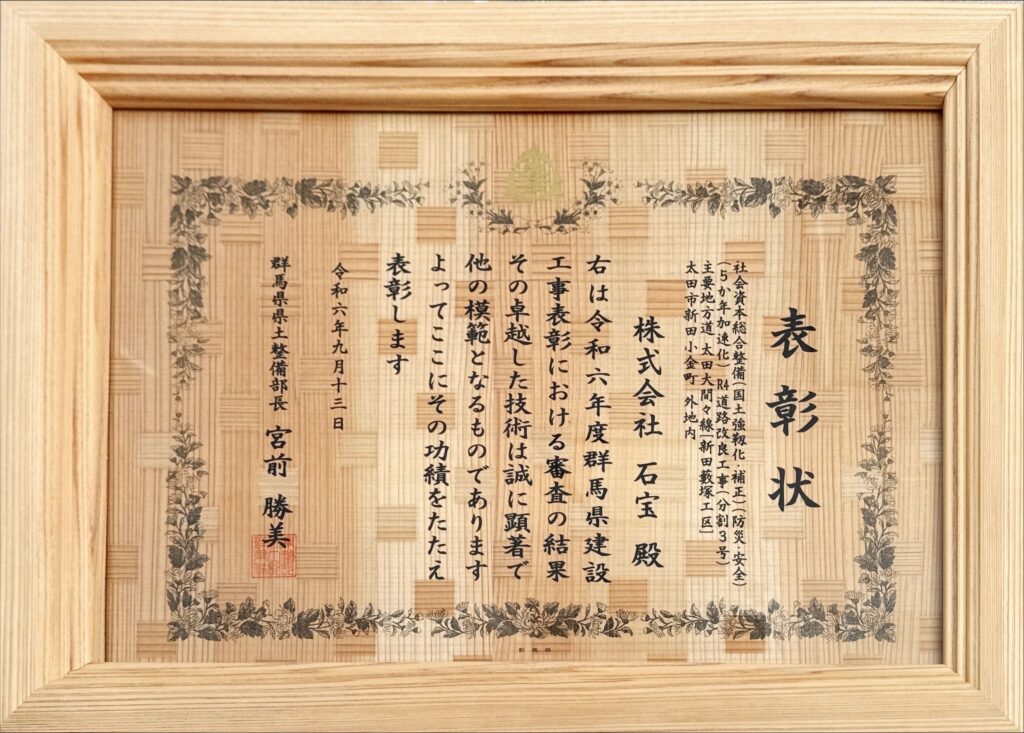 表彰状
社会資本総合整備(国土強靱化・補正)(防災・安全)
(5か年加速化) R4道路改良工事(分割3号)
主要地方道 太田大間々線[新田藪塚工区]
太田市新田小金町 外地内
株式会社 石宝 殿
右は令和六年度群馬県建設
工事表彰における審査の結果
その卓越した技術は誠に顕著で
他の模範となるものであります
よってここにその功績をたたえ
表彰します
令和六年九月十三日
群馬県県土整備部長 宮前 勝美
群馬県